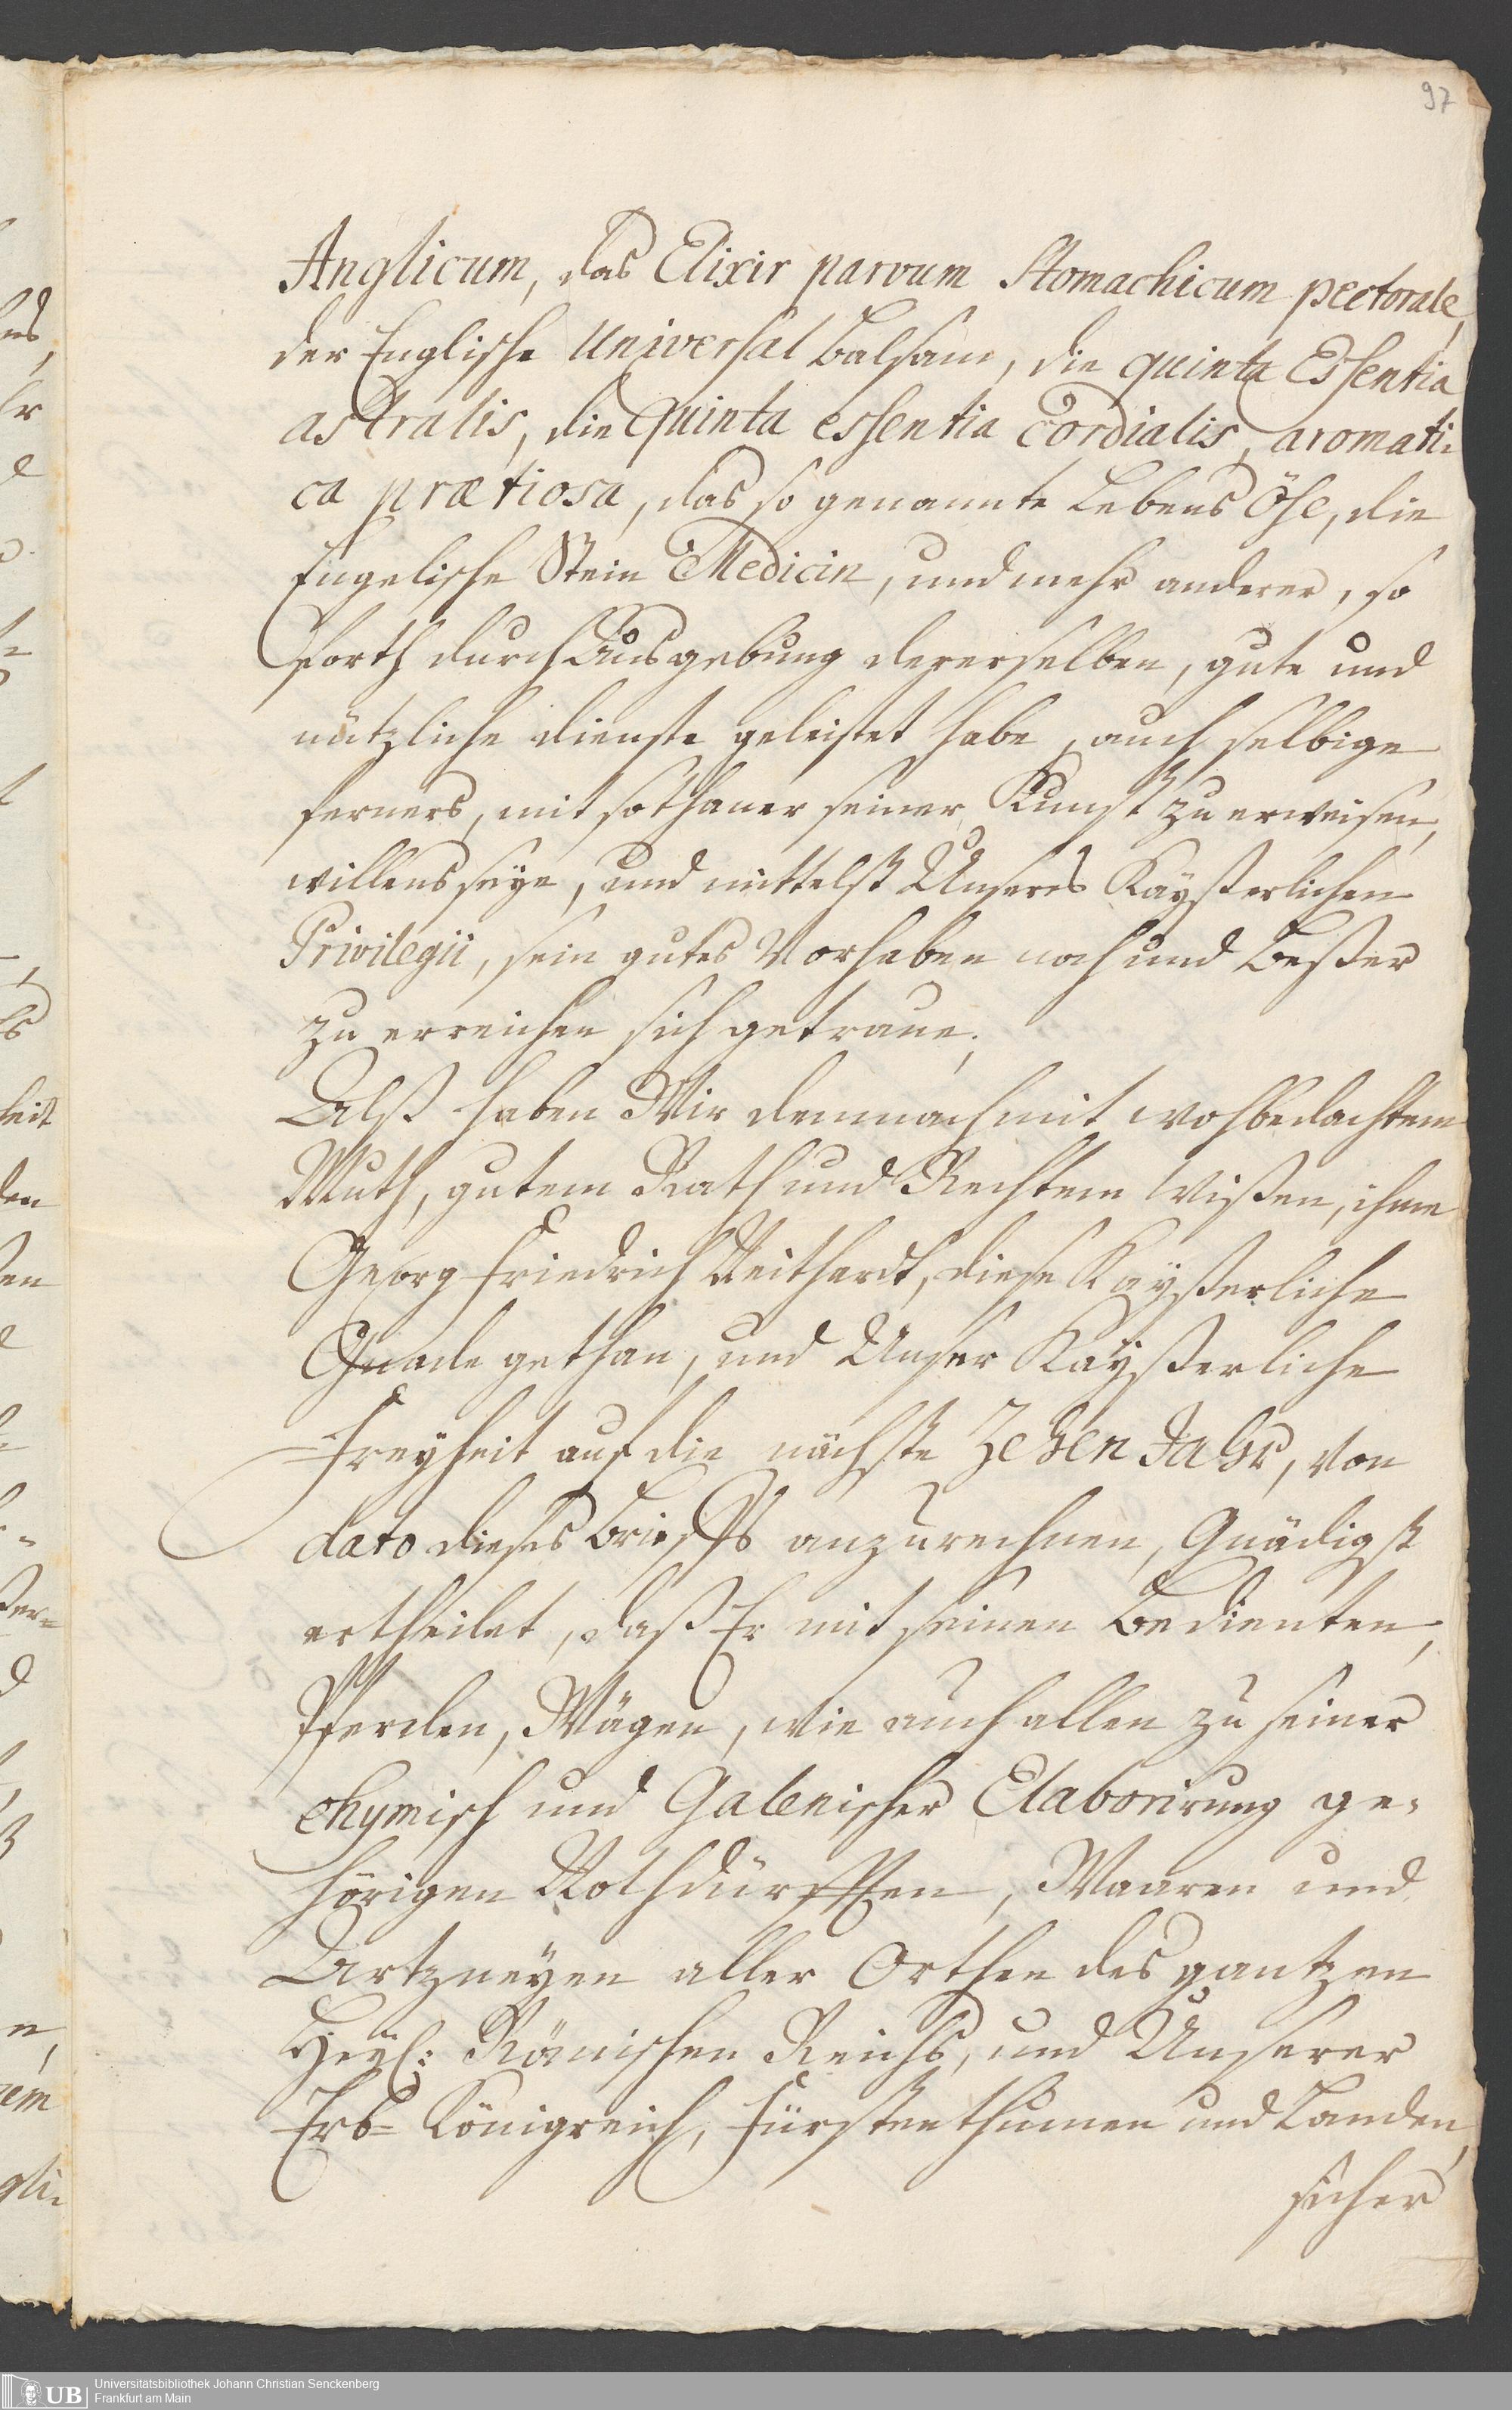 97
Anglicum, das Elixir parvum Stomachicum pectorale,
der Englische Universal Balsam, die quinta Essentia
astralis, die quinta essentia cordialis, aromati-
ca prætiosa, das so genannte Lebens Öhl, die
Engelische Stein Medicin, und mehr anderer, so
forth durch Ausgebung dererselben, gute und
nützliche dienste geleistet habe, auch selbige
ferners, mit sothaner seiner Kunst zu erweisen,
willens seye, und mittelst Unseres Kayßerlichen
Privilegii, sein gutes Vorhaben noch und beßer
zu erreichen sich getraue;
Alß haben Wir demnach mit wohlbedachtem
Muth, gutem Rath und Rechtem Wißen, ihme
Georg Friedrich Neithardt, diese Kayßerliche
Gnade gethan, und Unser Kayßerliche
Freyheit auf die nächste Zehen Jahr, von
dato dieses Brieffs anzurechnen, Gnädigst
ertheilet, daß Er mit seinen Bedienten,
Pferden, Wägen, wie auch allen zu seiner
chymisch und Galenischer Elaborirung ge-
hörigen Nothdürfften, Waaren und
Artzneyen aller Orthen des gantzen
Heyl: Römischen Reichs, und Unserer
Erb= Königreich, Fürstenthumen und Landen,
sicher
UB
Universitätsbibliothek Johann Christian Senckenberg
Frankfurt am Main